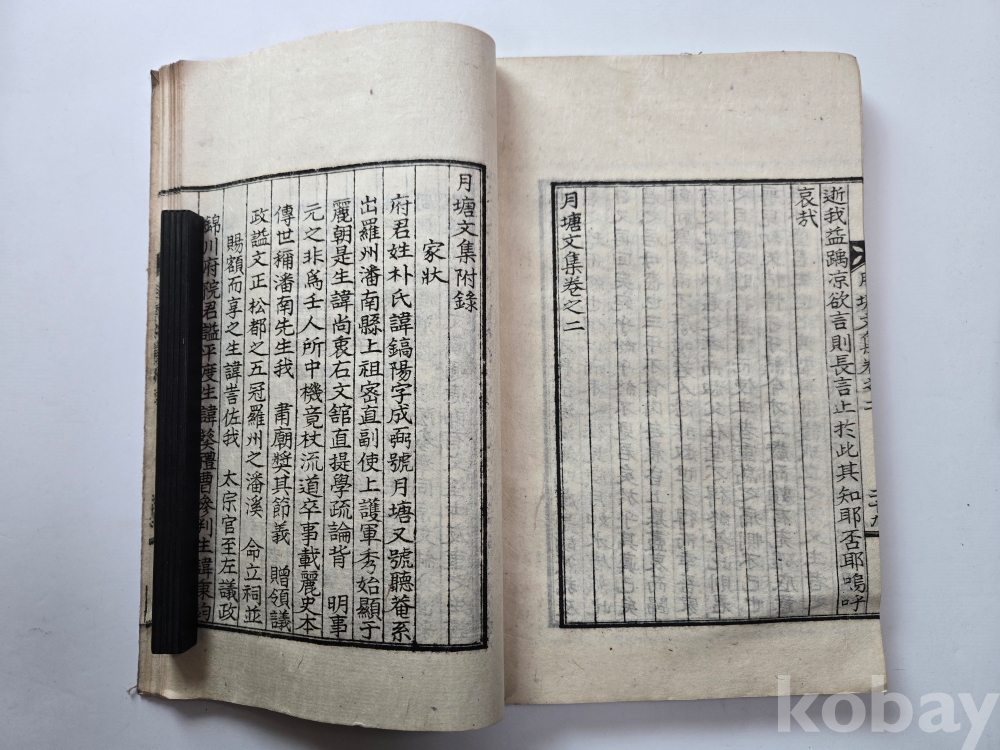 逝我益踽凉欲言則長言止於此其知耶否耶嗚呼
哀哉
月塘文集卷之二
月塘文集附錄
家狀
府君姓朴氏諱鎬陽字成弼號月塘又號聽菴系
出羅州潘南縣上祖密直副使上護軍秀始顯于
麗朝是生諱尚衷右文舘直提學疏論背 明事
元之非爲壬人所中機竟杖流道卒事載麗史本
傳世稱潘南先生我 肅廟獎其節義 贈領議
政謚文正松都之五冠羅州之潘溪 命立祠並
賜額而享之生諱訔佐我 太宗官至左議政
錦川府院君謚平度生諱葵禮曹參判生諱秉均
kobay